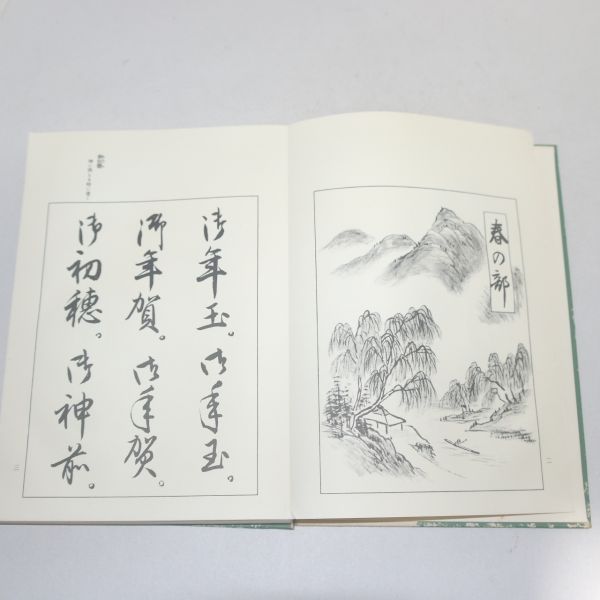 春の部
二
御年玉。御年玉。
御年賀。御年賀。
御初穂。御神前。
三